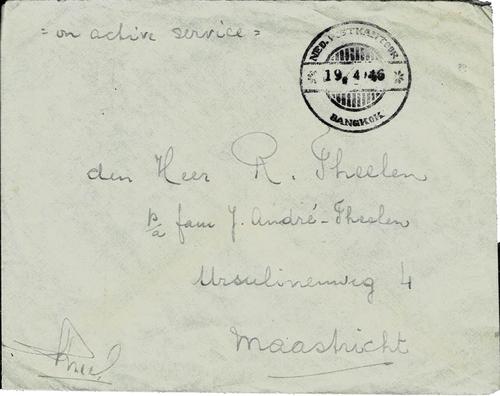 = on active service =
NED. POSTKANTOOR
19. 4. 46
BANGKOK
den Heer R. Theelen
p/a fam J. André-Theelen
Ursulinenweg 4
Maastricht